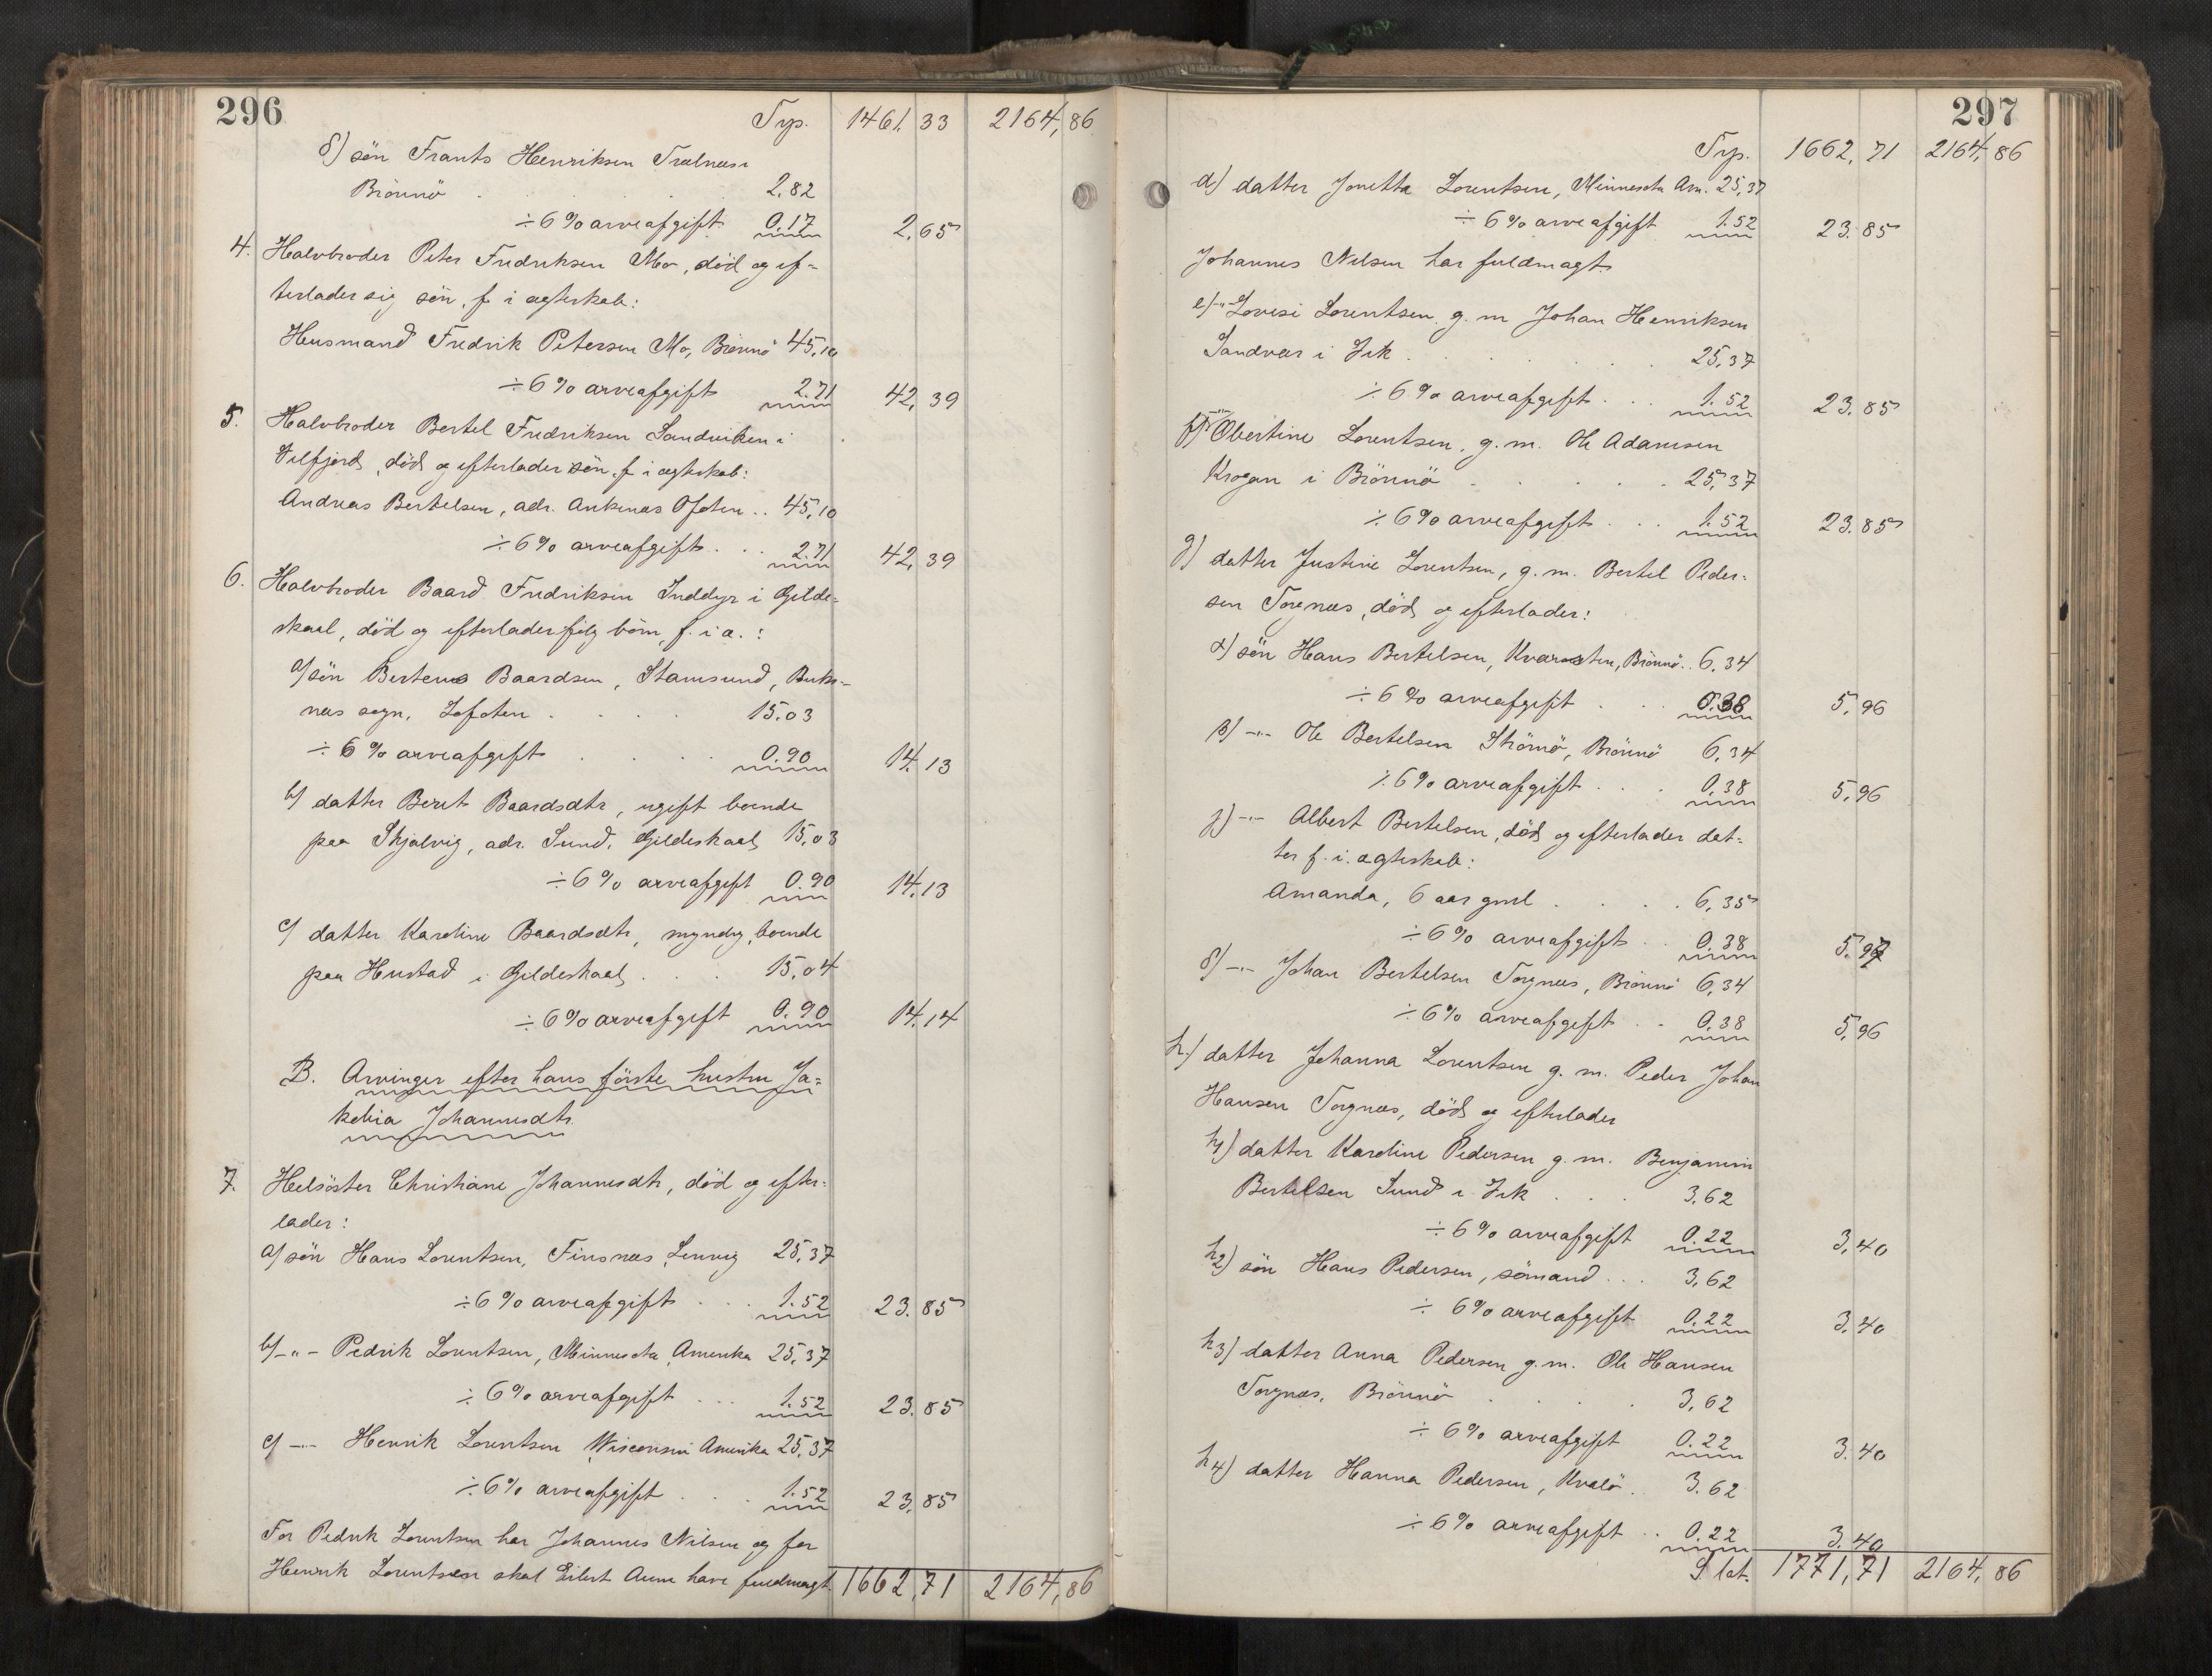 296
Trp. 1461,33 2164,86
δ) søn Frants Henriksen Trælnæs i
Brönnö . . . 2.82
÷ 6 % arveafgift 0.17 2,65
4. Halvbroder Peter Fredriksen Mo, död og ef-
terlader sig søn, f. i ægteskab:
Husmand Fredrik Petersen Mo, Brönnö 45,10
÷ 6 % arveafgift 2.71 42,39
5. Halvbroder Bertel Fredriksen Sandviken i
Velfjord, död og efterlader søn f. i ægteskab:
Andreas Bertelsen, adr. Ankenæs Ofoten .. 45,10
÷ 6 % arveafgift . . . 2.71 42,39
6. Halvbroder Baard Fredriksen Inddyr i Gilde-
skaal, död og efterlader følg börn, f. i æ.:
a) søn Berteus Baardsen, Stamsund, Buks-
næs sogn, Lofoten . . . . 15.03
÷ 6 % arveafgift . . . . 0.90 14.13
b) datter Berit Baardsdtr, ugift boende
paa Skjelvig, adr. Sund, Gildeskaal 15,03
÷ 6 % arveafgift 0.90 14.13
c) datter Karoline Baardsdtr, myndig, boende
paa Hustad i Gildeskaal . . . 15,04
÷ 6 % arveafgift 0.90 14.14
B. Arvinger efter hans første hustru Ja-
kobia Johannesdtr.
7. Helsöster Christiane Johannesdtr, död og efter-
lader:
a) søn Hans Lorentsen, Finsnæs, Lenvig 25,37
÷ 6 % arveafgift . . . 1.52 23.85
b) -"- Pedrik Lorentsen, Minnesota, Amerika 25,37
÷ 6 % arveafgift . . . 1.52 23.85
c) -"- Henrik Lorentsen, Wisconsin Amerika 25,37
÷ 6 % arveafgift . . . 1.52 23.85
For Pedrik Lorentsen har Johannes Nilsen og for
Henrik Lorentsen skal Eilert Aune have fuldmagt. 1662,71 2164,86
297
Trp. 1662,71 2164,86
d) datter Jonetta Lorentsen, Minnesota Am. 25,37
÷ 6 % arveafgift 1.52 23.85
Johannes Nilsen har fuldmagt
e) -"- Lovise Lorentsen g. m. Johan Henriksen
Sandvær i Vik . . . . . 25,37
÷ 6 % arveafgift . . . 1.52 23.85
f) -"- Obertine Lorentsen, g. m. Ole Adamsen
Krogen i Brönnö . . . . . 25,37
÷ 6 % arveafgift . . . 1.52 23.85
g) datter Justine Lorentsen, g. m. Bertel Peder-
sen Torgnæs, död og efterlader:
α) søn Hans Bertelsen, Brönnö .. 6,34
÷ 6 % arveafgift . . . 0.38 5,96
β) -"- Ole Bertelsen Strömö, Brönnö 6,34
÷ 6 % arveafgift . . . 0.38 5,96
γ) -"- Albert Bertelsen, död og efterlader dat-
ter f. i. ægteskab:
Amanda, 6 aar gml . . . . 6,35
÷ 6 % arveafgift . . 0.38 5.97
δ) -"- Johan Bertelsen Torgnæs, Brönnö 6,34
÷ 6 % arveafgift . . 0.38 5,96
h.) datter Johanna Lorentsen g. m. Peder Johan
Hansen Torgnæs, död og efterlader
h1) datter Karoline Pedersen g. m. Benjamin
Bertelsen Sund i Vik . . . 3.62
÷ 6 % arveafgift 0.22 3,40
h2) søn Hans Pedersen, sömand . . . 3,62
÷ 6 % arveafgift 0.22 3.40
h3) datter Anna Pedersen g. m. Ole Hansen
Torgnæs, Brönnö . . . . 3,62
÷ 6 % arveafgift 0.22 3.40
h4) datter Hanna Pedersen, Kvalö . 3.62
÷ 6 % arveafgift . . 0.22 3.40
S lat. 1771,71 2164,86